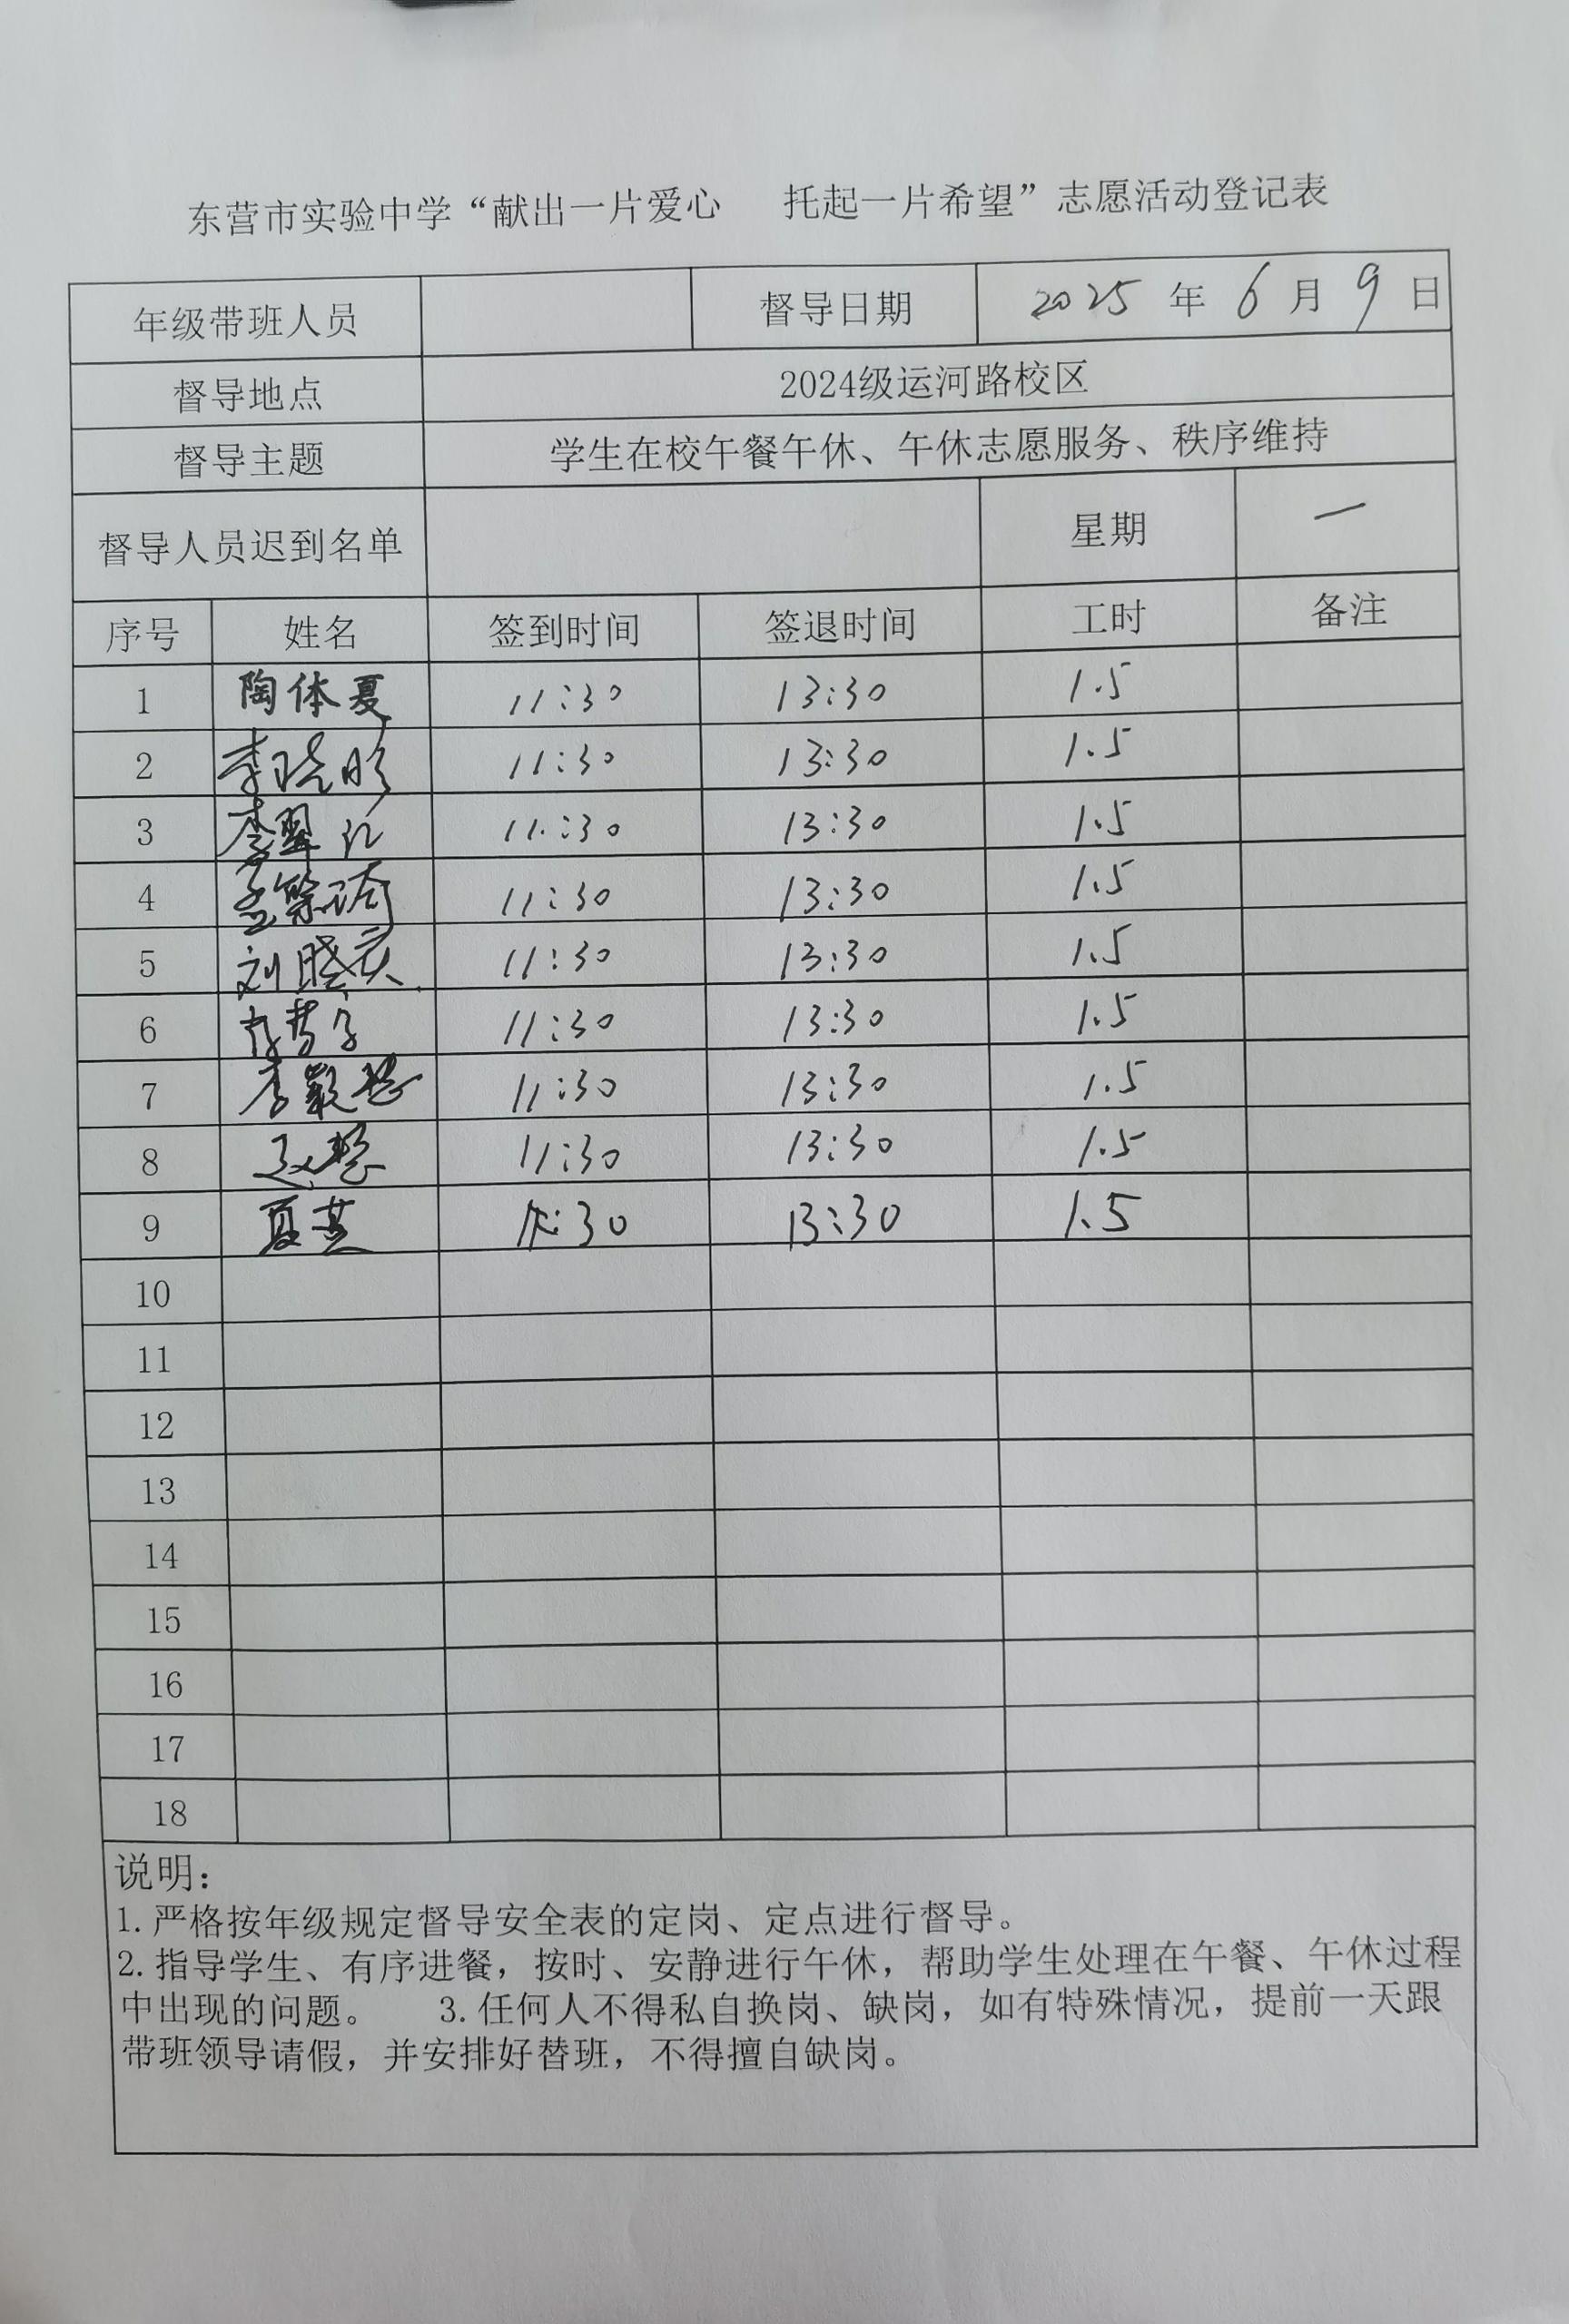 东营市实验中学“献出一片爱心 托起一片希望”志愿活动登记表
年级带班人员 督导日期 2025 年 6 月 9 日
督导地点 2024级运河路校区
督导主题 学生在校午餐午休、午休志愿服务、秩序维持
督导人员迟到名单 星期 一
序号 姓名 签到时间 签退时间 工时 备注
1 陶体夏 11:30 13:30 1.5
2 李晓彤 11:30 13:30 1.5
3 李翠红 11:30 13:30 1.5
4 孟繁琦 11:30 13:30 1.5
5 刘晓庆 11:30 13:30 1.5
6 11:30 13:30 1.5
7 李 11:30 13:30 1.5
8 赵慧 11:30 13:30 1.5
9 夏燕 :30 13:30 1.5
10
11
12
13
14
15
16
17
18
说明：
1.严格按年级规定督导安全表的定岗、定点进行督导。
2.指导学生、有序进餐，按时、安静进行午休，帮助学生处理在午餐、午休过程
中出现的问题。 3.任何人不得私自换岗、缺岗，如有特殊情况，提前一天跟
带班领导请假，并安排好替班，不得擅自缺岗。